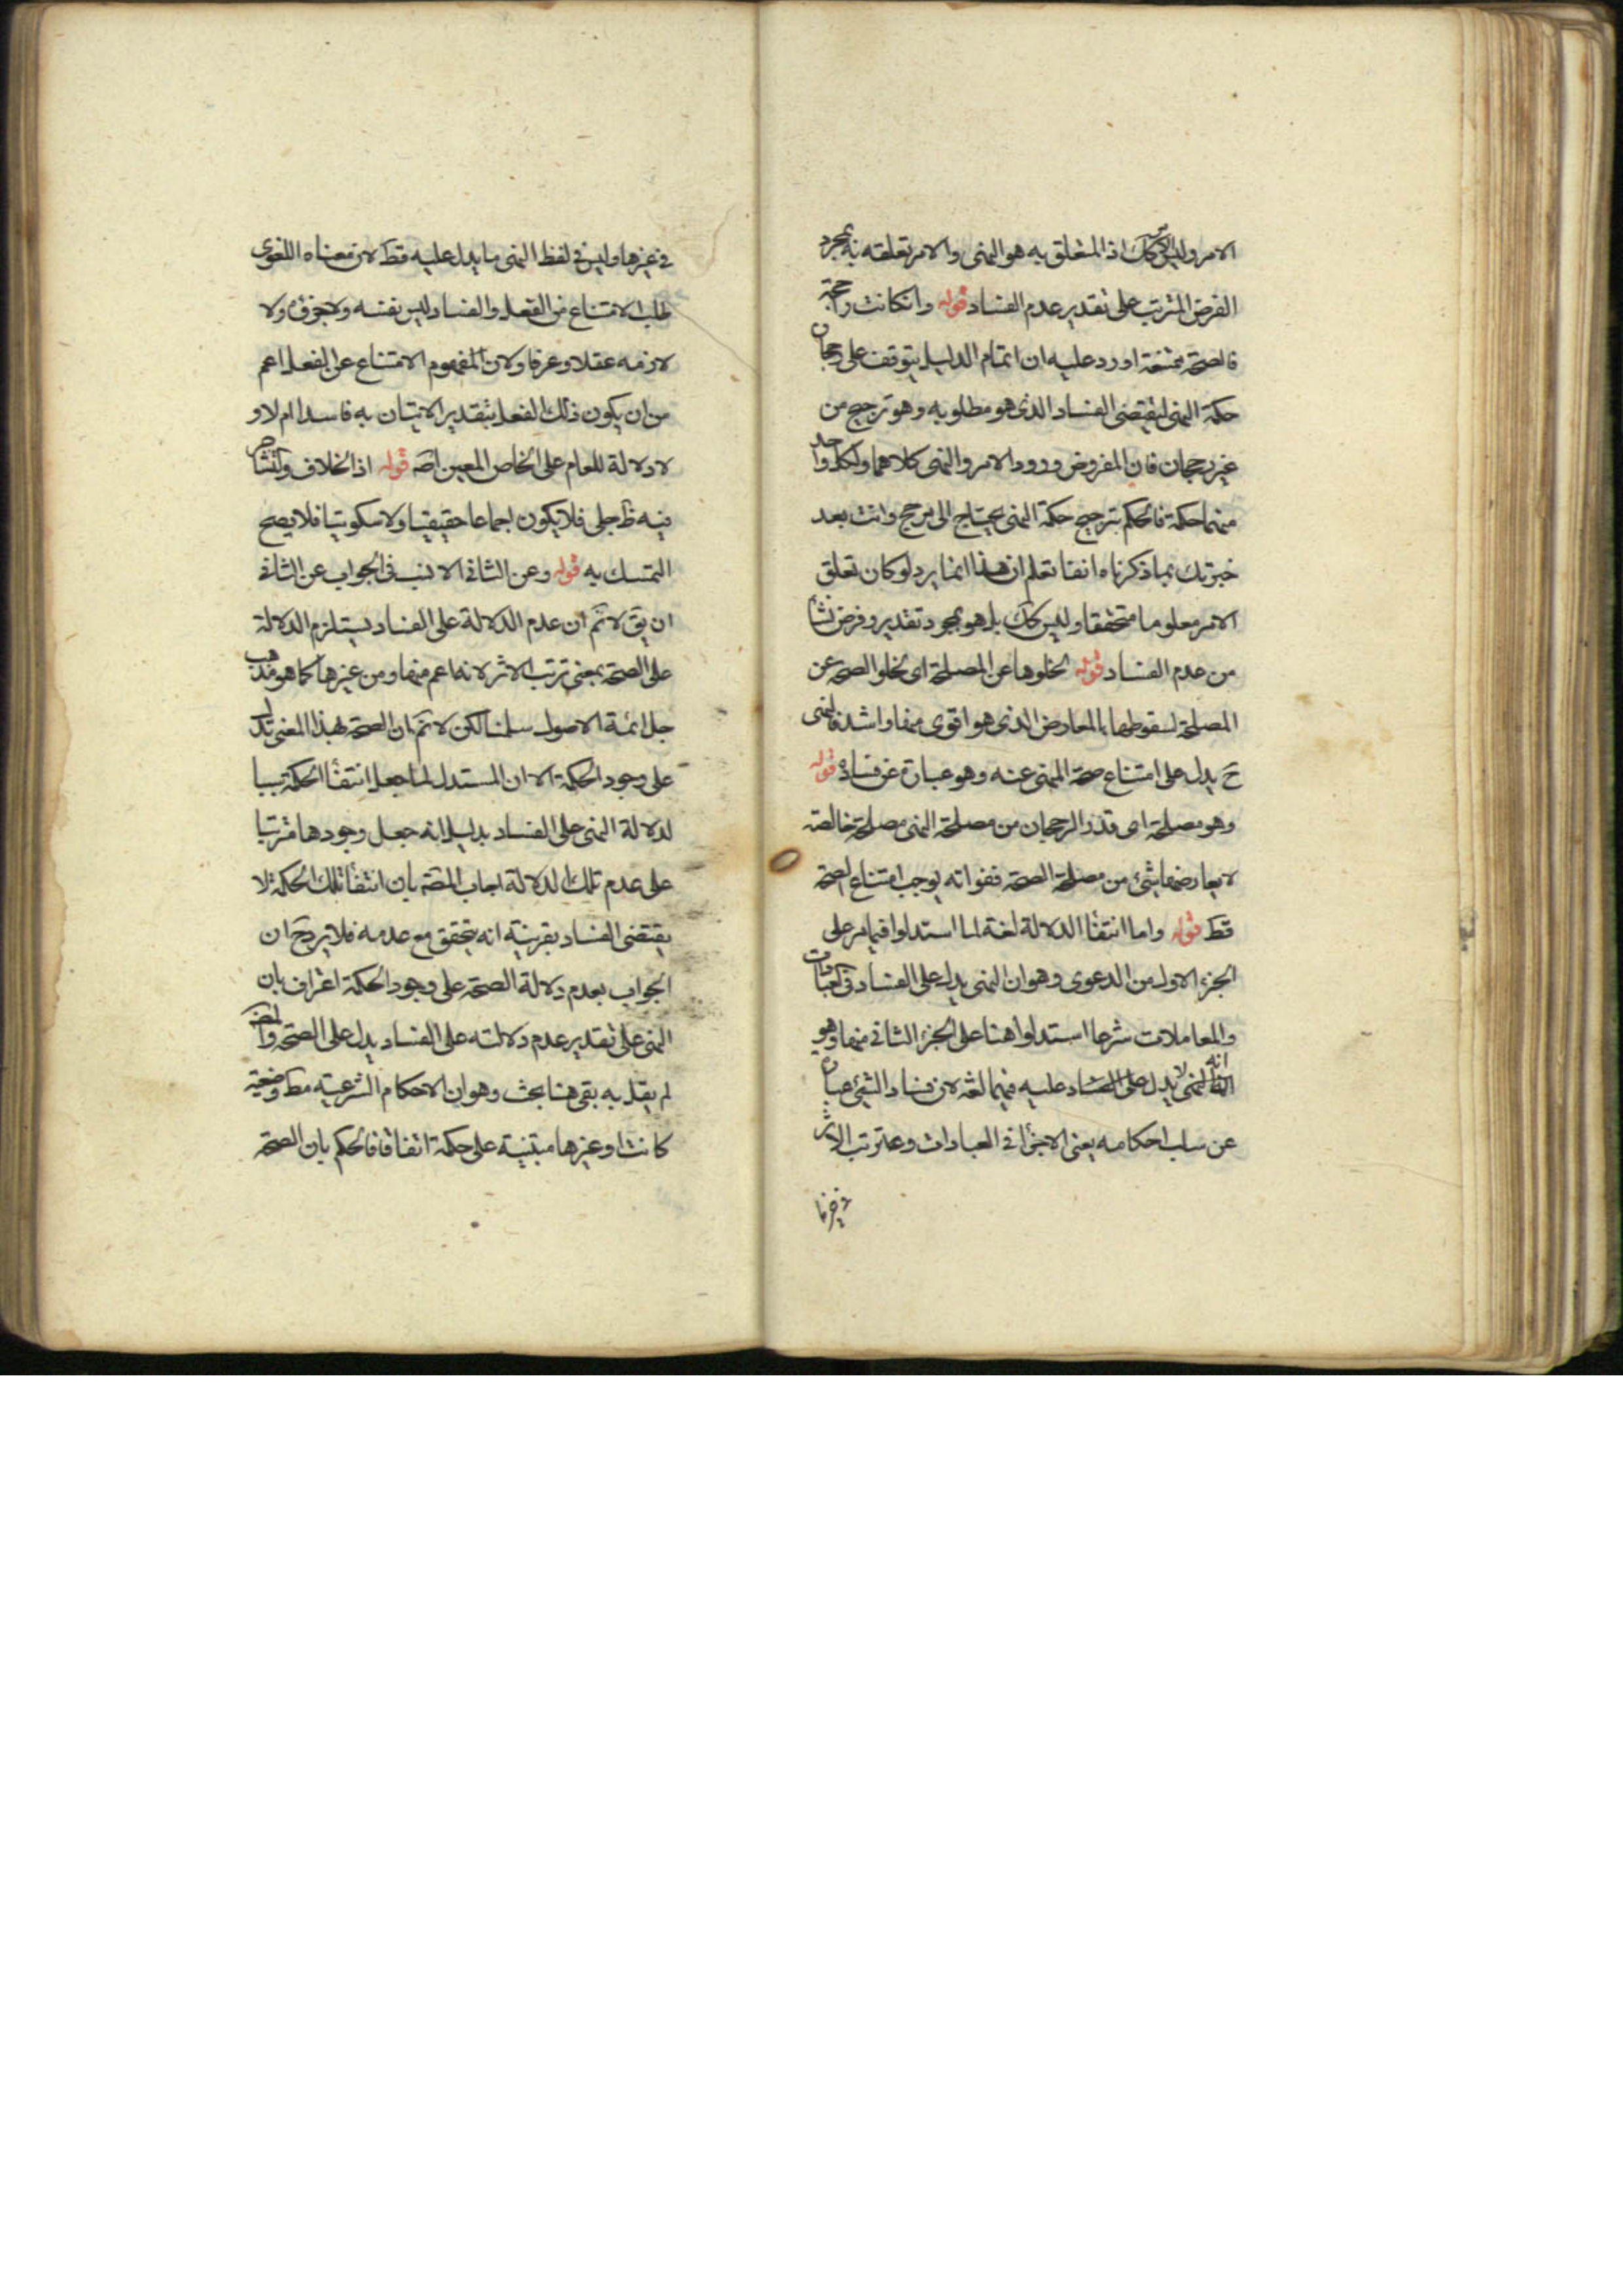 الامر وليس كك اذ المتعلق به هو النهى والامر تعلقه به بمجرد
الفرض المترتب على تقدير عدم الفساد قوله وانكانت راجحة
فالصحة ممتنعة اورد عليه ان اتمام الدليل يتوقف على رجحان
حكمة النهى ليقتضى الفساد الذى هو مطلوبه وهو ترجيح من
غير رجحان فان المفروض ورود الامر والنهى كلاهما ولكل واحد
منهما حكمة فالحكم بترجيح حكمة النهى يحتاج الى مرجح وانت بعد
خبرتك بما ذكرناه انفا تعلم ان هذا انما يرد لو كان تعلق
الامر معلوما متحققا وليس كك بل هو بمجرد تقدير وفرض نشا
من عدم الفساد قوله لخلوها عن المصلحة اى لخلو الصحة عن
المصلحة لسقوطها بالمعارض الذى هو اقوى منها واشد فالنهى
ح يدل على امتناع صحة المنهى عنه وهو عبارة عن فساده قوله
وهو مصلحة اى قدر الرجحان من مصلحة النهى مصلحة خالصة
لا يعارضها شئ من مصلحة الصحة ففواته يوجب امتناع الصحة
قط قوله واما انتفا الدلالة لغة لما استدلوا فيما مر على
الجزء الاول من الدعوى وهو ان النهى يدل على الفساد فى العبادات
والمعاملات شرعا استدلوا هنا على الجزء الثانى منها وهو
انه لا يدل عليه فيهما لغة لان فساد الشئ عبارة
عن سلب احكامه يعنى الاجزأ فى العبادات وعدم ترتب الاثر
فى غيرها
فى غيرها وليس فى لفظ النهى ما يدل عليه قط لان معناه اللغوى
طلب الامتناع من الفعل والفساد ليس نفسه ولا جزؤه ولا
لازمه عقلا وعرفا ولان المفهوم الامتناع عن الفعل اعم
من ان يكون ذلك الفعل بتقدير الاتيان به فاسدا ام لا و
لا دلالة للعام على الخاص المعين اصه قوله اذ الخلاف والتشاجر
فيه ظ جلى فلا يكون اجماعا حقيقيا ولا سكوتيا فلا يصح
التمسك به قوله وعن الثانى الانسب فى الجواب عن الثانى
ان يق لا نم ان عدم الدلالة على الفساد يستلزم الدلالة
على الصحة بمعنى ترتب الاثر لانه اعم منها ومن غيرها كما هو مذهب
جل ائمة الاصول سلمنا لكن لا نم ان الصحة بهذا المعنى تدل
على وجود الحكمة الا ان المستدل لما جعل انتفأ الحكمة سببا
لدلالة النهى على الفساد بدليل انه جعل وجودها مرتبا
على عدم تلك الدلالة اجاب المصه بان انتفأ تلك الحكمة لا
يقتضى الفساد بقرينة انه يتحقق مع عدمه فلا يرد ح ان
الجواب بعدم دلالة الصحة على وجود الحكمة اعتراف بان
النهى على تقدير عدم دلالته على الفساد يدل على الصحة
لم يقل به بقى هنا بحث وهو ان الاحكام الشرعية مط وضعية
كانت او غيرها مبتنية على حكمة اتفاقا فالحكم بان الصحة